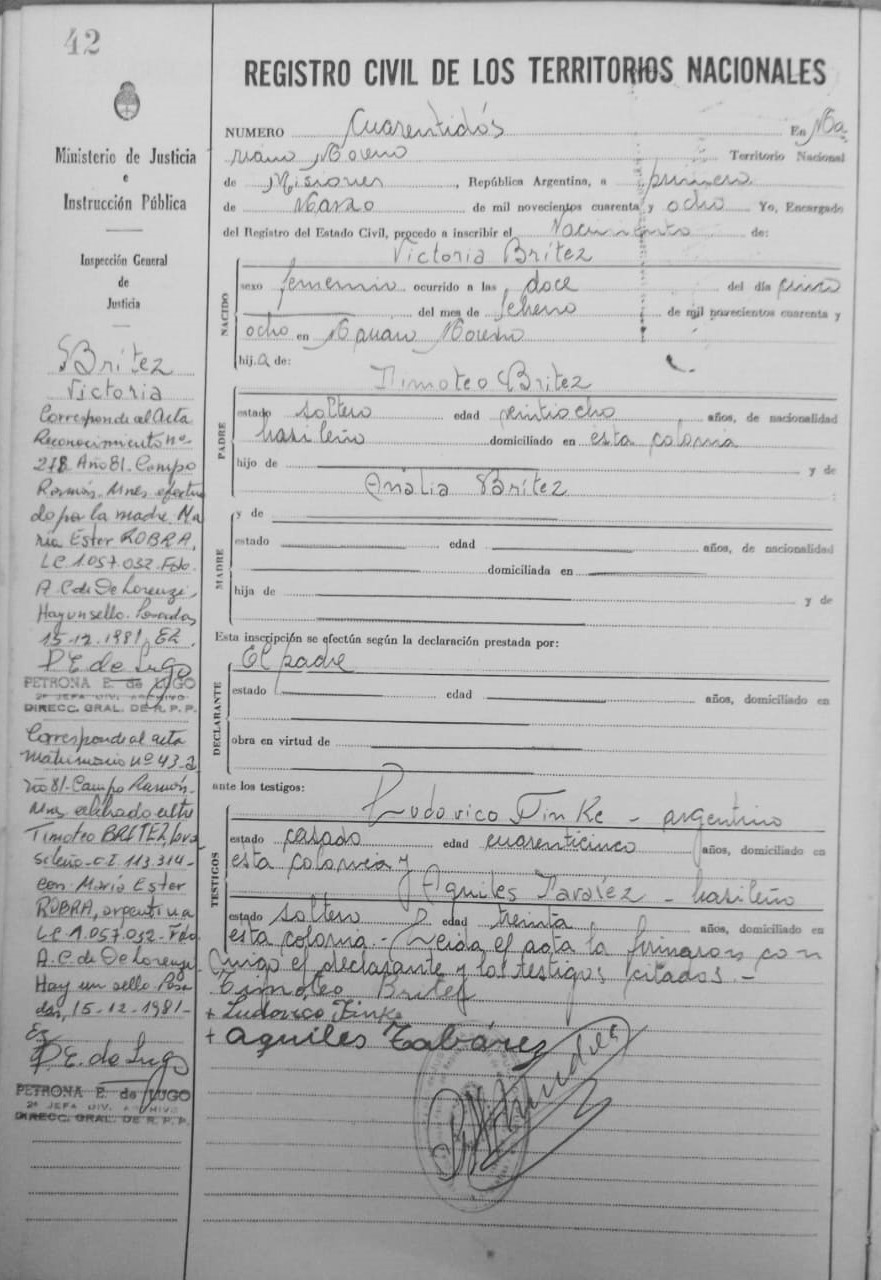 42
Ministerio de Justicia
e
Instrucción Pública
Inspección General
de
Justicia
Brítez
Victoria
Corresponde al Acta
Reconocimiento nº
278 Año 81. Campo
Ramón. Mnes efectua
do por la madre Ma
ría Ester ROBRA,
LC 1.057.032. Fdo
A.C. de De Lorenzi,
Hay un sello. Posadas
15-12-1981. Ez.
P.E. de Lugo
PETRONA E. de LUGO
2ª JEFA DIV. ARCHIVO
DIRECC. GRAL. DE R. P. P.
Corresponde al acta
Matrimonio nº 43-a
ño 81-Campo Ramón-
Mnes entre
Timoteo BRITEZ, bra
sileño-C.I 113.314-
con María Ester
ROBRA, argentina
LC 1.057.032-Fdo
A.C. de De Lorenzi-
Hay un sello Posa
das, 15-12-1981-
Ez
P.E. de Lugo
PETRONA E. de LUGO
2ª JEFA DIV. ARCHIVO
DIRECC. GRAL. DE R. P. P.
REGISTRO CIVIL DE LOS TERRITORIOS NACIONALES
NUMERO Cuarentidós En Ma
riano Moreno Territorio Nacional
de Misiones, República Argentina, a primero
de Marzo de mil novecientos cuarenta y ocho Yo, Encargado
del Registro del Estado Civil, procedo a inscribir el Nacimiento de:
Victoria Brítez
NACIDO
sexo femenino ocurrido a las doce del día cinco
del mes de febrero de mil novecientos cuarenta y
ocho en Mariano Moreno
hija de:
Timoteo Brítez
PADRE
estado soltero edad veintiocho años, de nacionalidad
brasileño domiciliado en esta colonia
hijo de y de
Onalia Brítez
MADRE
y de
estado edad años, de nacionalidad
domiciliada en
hija de y de
Esta inscripción se efectúa según la declaración prestada por:
El padre
DECLARANTE
estado edad años, domiciliado en
obra en virtud de
ante los testigos:
Ludovico Finke - argentino
TESTIGOS
estado casado edad cuarenticinco años, domiciliado en
esta colonia y
Aquiles Tavarez - brasileño
estado soltero edad treinta años, domiciliado en
esta colonia.- Leida el acta la firmaron con
migo el declarante y los testigos citados.-
Timoteo Britez
+ Ludovico Finke
+ Aquiles Tabárez